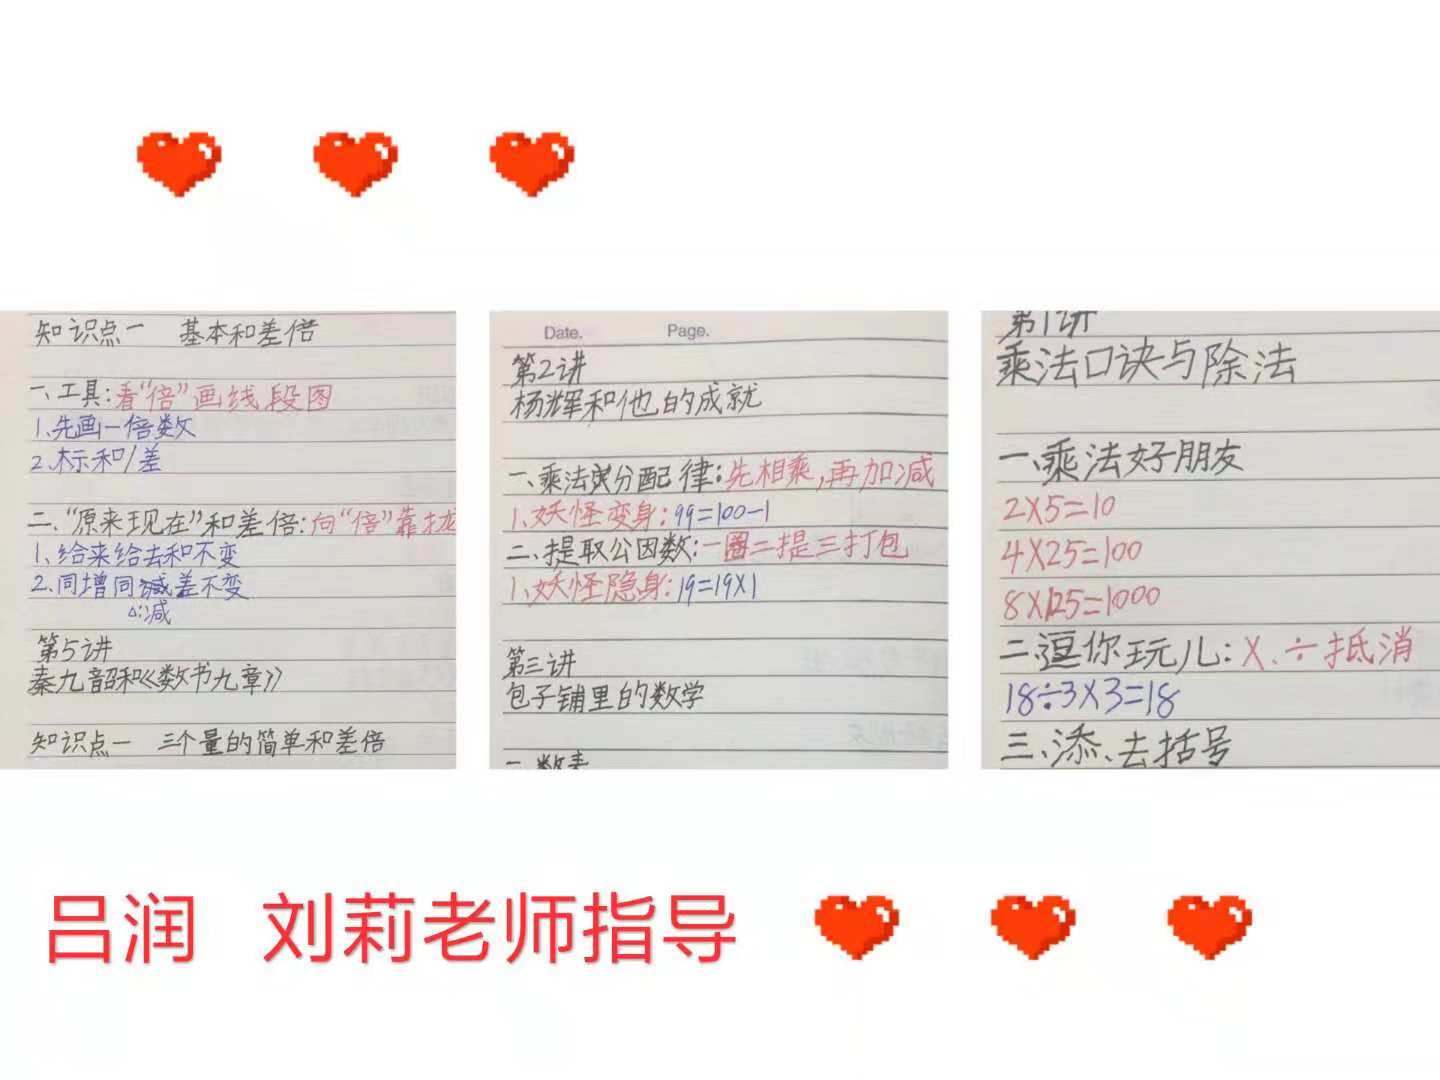 知识点一 基本和差倍
一、工具:看“倍”画线段图
1.先画一倍数
2.标和/差
二、“原来现在”和差倍:向“倍”靠拢
1.给来给去和不变
2.同增同减差不变
△:减
第5讲
秦九韶和《数书九章》
知识点一 三个量的简单和差倍
Date. Page.
第2讲
杨辉和他的成就
一、乘法分配律:先相乘,再加减
1.妖怪变身:99=100-1
二、提取公因数:一圈二提三打包
1.妖怪隐身:19=19×1
第三讲
包子铺里的数学
第1讲
乘法口诀与除法
一、乘法好朋友
2×5=10
4×25=100
8×125=1000
二逗你玩儿:×、÷抵消
18÷3×3=18
三、添、去括号
吕润 刘莉老师指导